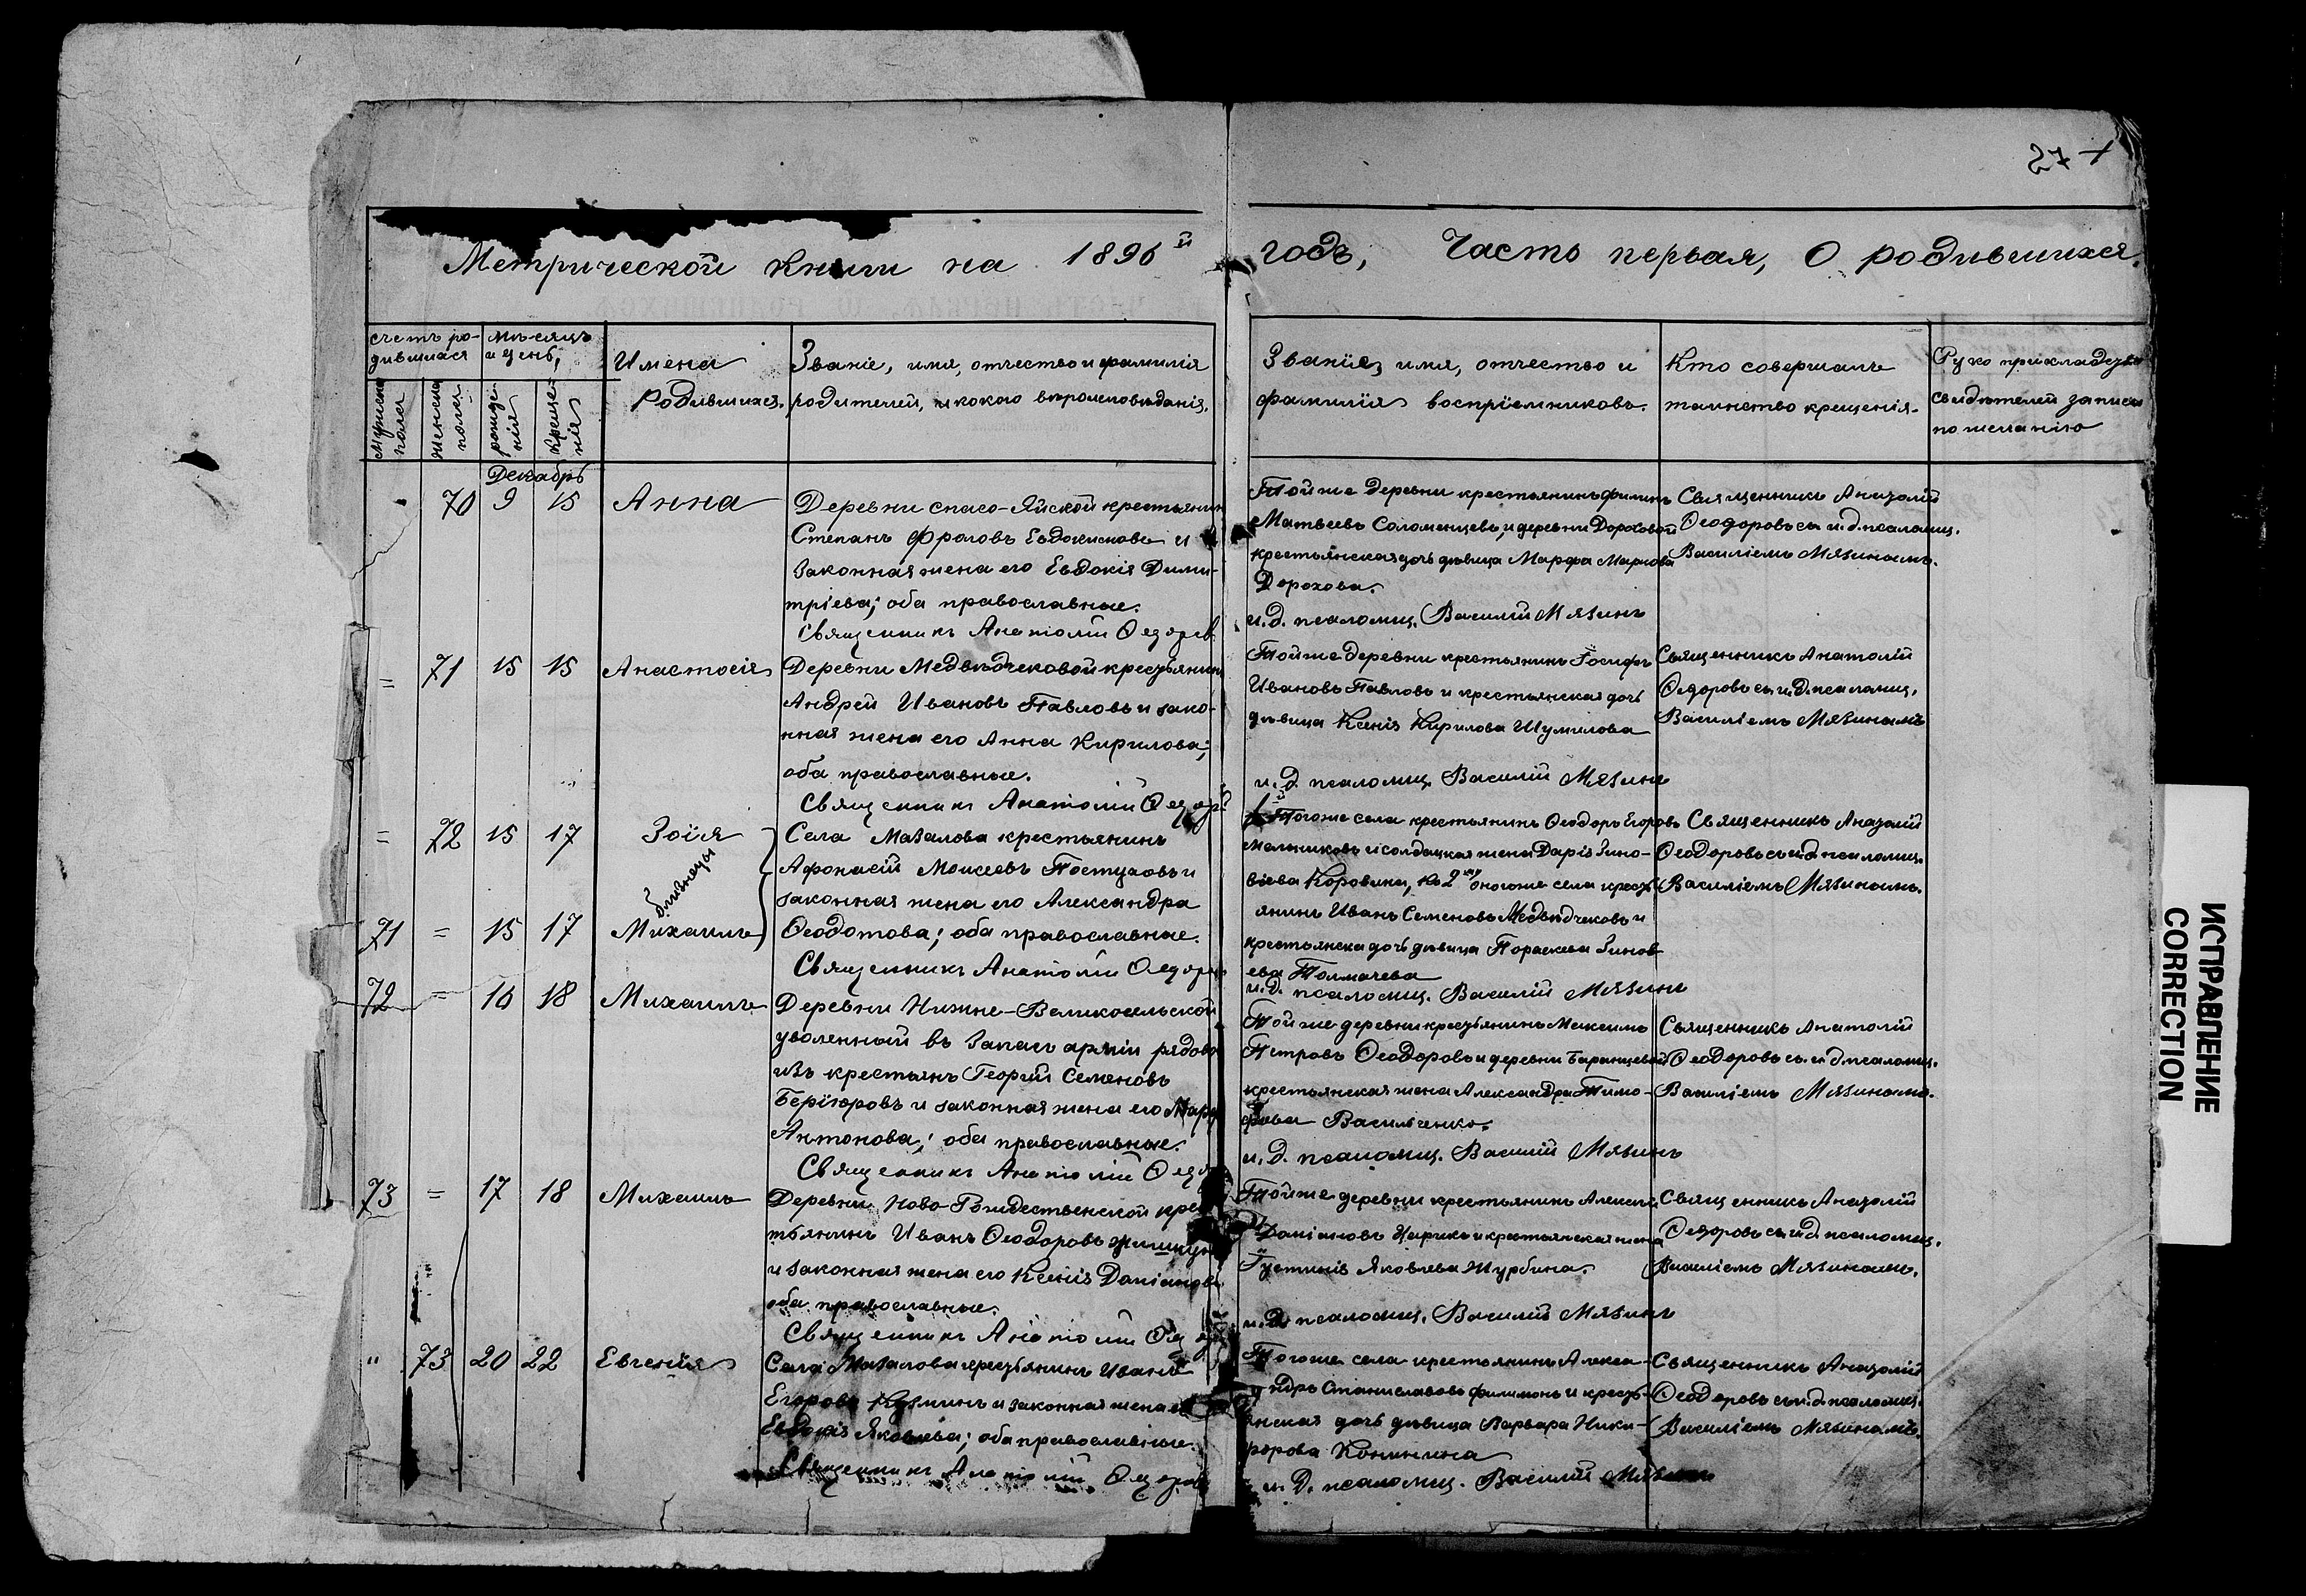 27
Метрической книги на 1896й годъ, Часть первая, О родившихся.
счетъ ро-
дившихся
Мужска
пола
Женска
пола
мѣсяцъ
и день,
рожде-
нія
креще-
нія
Имена
Родившихся.
Званіе, имя, отчество и фамилія
родителей, и какого вѣроисповѣданія.
Званіе, имя, отчество и
фамилія воспріемниковъ.
Кто совершалъ
таинство крещенія.
Руко прикладзтво
свидѣтелей записи
по желанію
Декабрь
70 9 15 Анна
Деревни спасо-Яйской крестьянин
Степанъ Фроловъ Евдокимовъ и
законная жена его Евдокія Дими-
тріева; оба православные.
Священникъ Анатолій Ѳедоров
Той же деревни крестьянинъ Филипъ
Матвеевъ Соломенцевъ, и деревни Дороховой
крестьянская дочь дѣвица Марфа Маркова
Дорохова.
и. д. псаломщ. Василій Мязинъ
Священникъ Анатолій
Ѳеодоровъ съ и. д. псаломщ.
Василіемъ Мязинымъ.
= 71 15 15 Анастасія
Деревни Медвѣдчековой крестьянин
Андрей Ивановъ Павловъ и зако-
нная жена его Анна Кирилова;
оба православные.
Священникъ Анатолій Ѳедор
Той же деревни крестьянинъ Іосифъ
Ивановъ Павловъ и крестьянская дочь
дѣвица Ксенія Кирилова Шумилова
и. д. псаломщ. Василій Мязинъ
Священникъ Анатолій
Ѳедоровъ съ и. д. псаломщ.
Василіемъ Мязинымъ
= 72 15 17 Зоія
близнецы
71 = 15 17 Михаилъ
Села Мазалова крестьянинъ
Афонасій Моисеевъ Пастуховъ и
законная жена его Александра
Ѳеодотова; оба православные.
Священникъ Анатолій Ѳедоров
1й Тогоже села крестьянинъ Ѳеодоръ Егоровъ
Мельниковъ и солдацкая жена Дарія Зино-
віева Коровина, ко 2му оногоже села кресть
янинъ Иванъ Семеновъ Медвѣдчековъ и
крестьянска дочь дѣвица Пораскева Зинов
ева Толмачева
и. д. псаломщ. Василій Мязинъ
Священникъ Анатолій
Ѳеодоровъ съ и. д. псаломщ.
Василіемъ Мязинымъ.
72 = 16 18 Михаилъ
Деревни Нижне-Великосельской
уволенный въ Запасъ арміи рядово
изъ крестьянъ Георгій Семеновъ
Берізоровъ и законная жена его Мари
Антонова; оба православные.
Священникъ Анатолій Ѳедо
Той же деревни крестьянинъ Максимъ
Петровъ Ѳеодоровъ и деревни Баранцевой
крестьянская жена Александра Тимо-
феева Васильченко.
и. д. псаломщ. Василій Мязинъ
Священникъ Анатолій
Ѳеодоровъ съ и. д. псаломщ.
Василіемъ Мязинымъ.
73 = 17 18 Михаилъ
Деревни Ново-Рождественской крес
тьянинъ Иванъ Ѳеодоровъ
и законная жена его Ксенія Даміанова
оба православные.
Священникъ Анатолій Ѳедор
Той же деревни крестьянинъ Алексій
Даміановъ Царикъ и крестьянская жена
Іустинія Яковлева Журбина.
и. д. псаломщ. Василій Мязинъ
Священникъ Анатолій
Ѳедоровъ съ и. д. псаломщ.
Василіемъ Мязинымъ.
" 73 20 22 Евгенія
Села Мазалова крестьянинъ Иванъ
Егоровъ Кузминъ и законная жена его
Евдокія Яковлева; оба православные.
Священникъ Анатолій Ѳедоров
Тогоже села крестьянинъ Алекса-
ндръ Станиславовъ Филимонъ и кресть-
янская дочь дѣвица Варвара Ники-
форова Конинина
и. д. псаломщ. Василій Мязинъ
Священникъ Анатолій
Ѳеодоровъ съ и. д. псаломщ.
Василіемъ Мязинымъ.
ИСПРАВЛЕНИЕ
CORRECTION